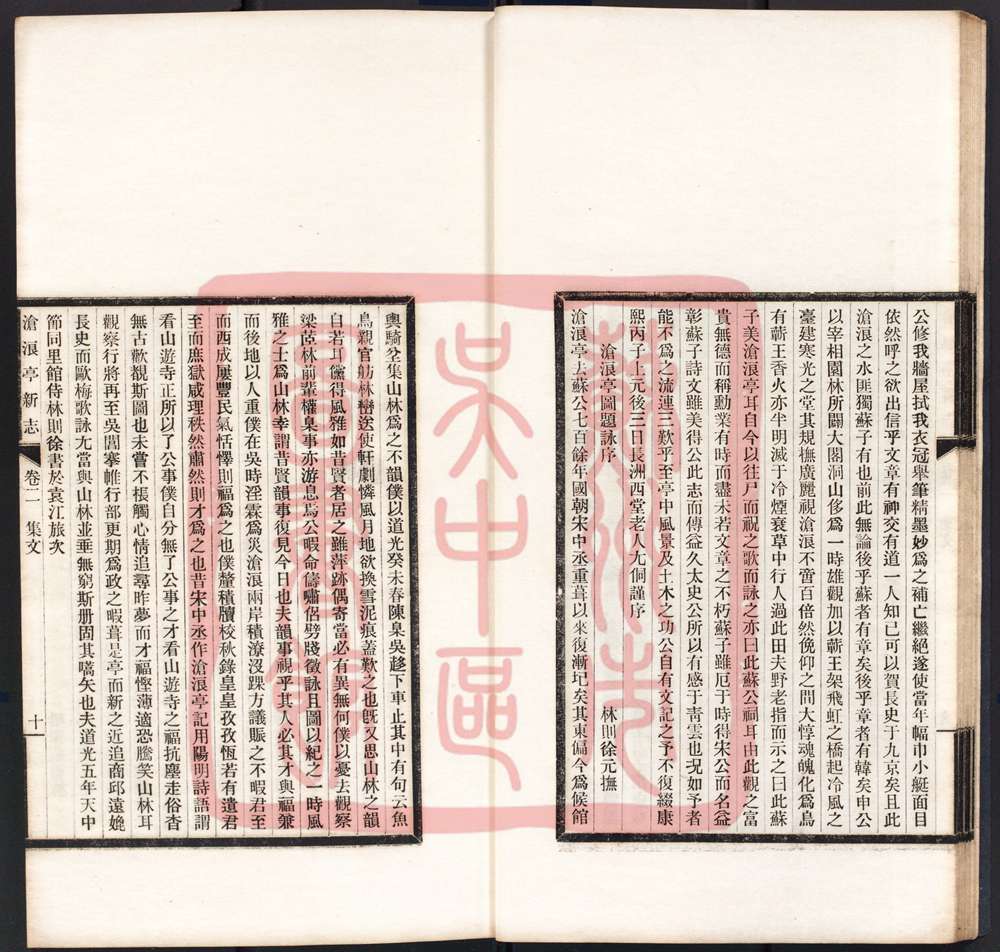 公修我牆屋拭我衣冠舉筆精墨妙爲之補亡繼絕遂使當年幅巾小艇面目
依然呼之欲出信乎文章有神交有道一人知己可以賀長史于九京矣且此
滄浪之水匪獨蘇子有也前此無論後乎蘇者有章矣後乎章者有韓矣申公
以宰相園林所闢大閣洞山侈爲一時雄觀加以蘄王架飛虹之橋起冷風之
臺建寒光之堂其規撫廣麗視滄浪不啻百倍然俛仰之間大惇魂魄化爲烏
有蘄王香火亦半明滅于冷煙衰草中行人過此田夫野老指而示之曰此蘇
子美滄浪亭耳自今以往尸而祝之歌而詠之亦曰此蘇公祠耳由此觀之富
貴無德而稱勳業有時而盡未若文章之不朽蘇子雖厄于時得宋公而名益
彰蘇子詩文雖美得公此志而傳益久太史公所以有感于青雲也況如予者
能不爲之流連三歎乎至亭中風景及土木之功公自有文記之予不復綴康
熙丙子上元後三日長洲西堂老人尤侗謹序
滄浪亭圖題詠序 林則徐元撫
滄浪亭去蘇公七百餘年國朝宋中丞重葺以來復漸圮矣其東偏今爲候館
輿騎坌集山林爲之不韻僕以道光癸未春陳臬吳趍下車止其中有句云魚
鳥親官舫林巒送使軒劇憐風月地欲換雪泥痕蓋歎之也旣又思山林之韻
自若耳儻得風雅如昔賢者居之雖萍跡偶寄當必有異無何僕以憂去觀察
梁茝林前輩權臬事亦游息焉公暇命儔嘯侶劈牋徵詠且圖以紀之一時風
雅之士爲山林幸謂昔賢韻事復見今日也夫韻事視乎其人必其才與福兼
而後地以人重僕在吳時淫霖爲災滄浪兩岸積潦沒踝方議賑之不暇君至
而西成屢豐民氣恬懌則福爲之也僕釐積牘校秋錄皇皇孜孜恆若有遺君
至而庶獄咸理秩然肅然則才爲之也昔宋中丞作滄浪亭記用陽明詩語謂
看山遊寺正所以了公事僕自分無了公事之才看山遊寺之福抗塵走俗杳
無古歡覩斯圖也未嘗不棖觸心情追尋昨夢而才福慳薄適恐騰笑山林耳
觀察行將再至吳閶搴帷行部更期爲政之暇葺是亭而新之近追商邱遠娩
長史而歐梅歌詠尤當與山林並垂無窮斯册固其嚆矢也夫道光五年天中
節同里館侍林則徐書於袁江旅次
滄浪亭新志 卷二 集文 十
蘇州市
吳中區
圖書館